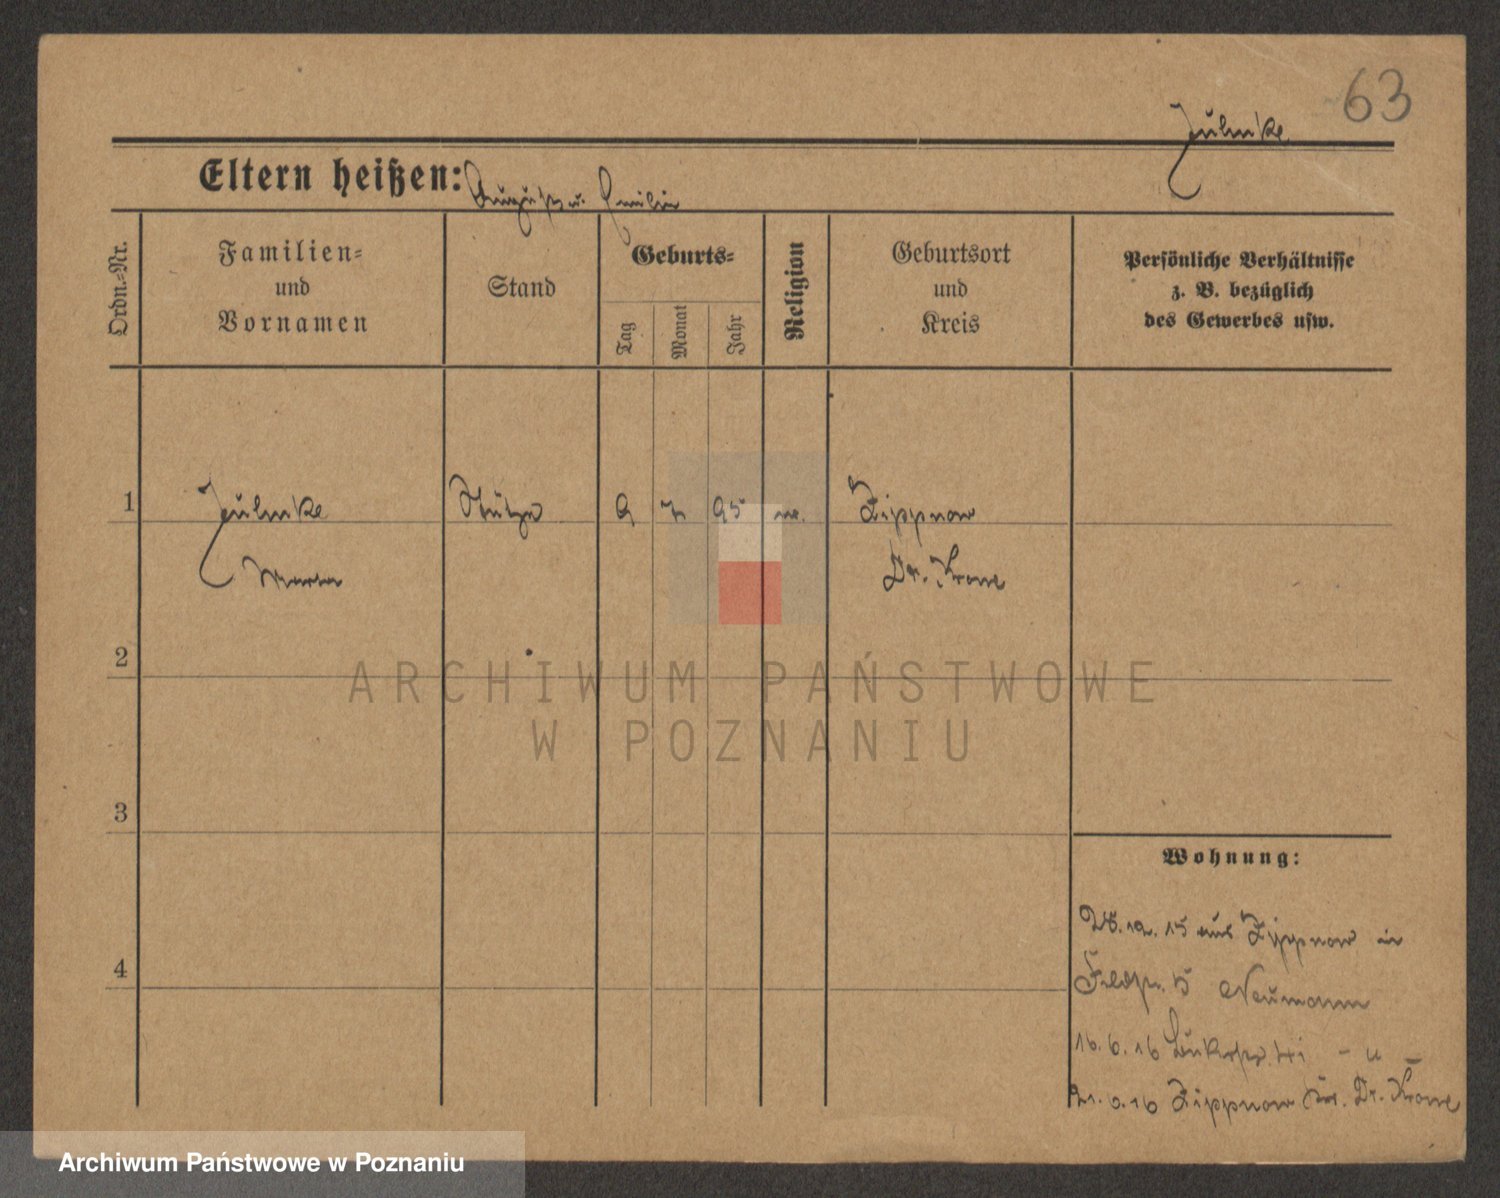 63
Zühlke
Eltern heißen: August u. Emilie
Ordn.-Nr.
Familien- und Vornamen
Stand
Geburts-
Tag
Monat
Jahr
Religion
Geburtsort und Kreis
Persönliche Verhältnisse
z. B. bezüglich
des Gewerbes usw.
1
Stütze
9
7
95
Zippnow
Dt. Krone
2
3
4
Wohnung:
28.12.15 aus Zippnow in
5 Neumann
16.6.16 - u -
21.6.16 Zippnow Kr. Dt. Krone
ARCHIWUM PAŃSTWOWE
W POZNANIU
Archiwum Państwowe w Poznaniu